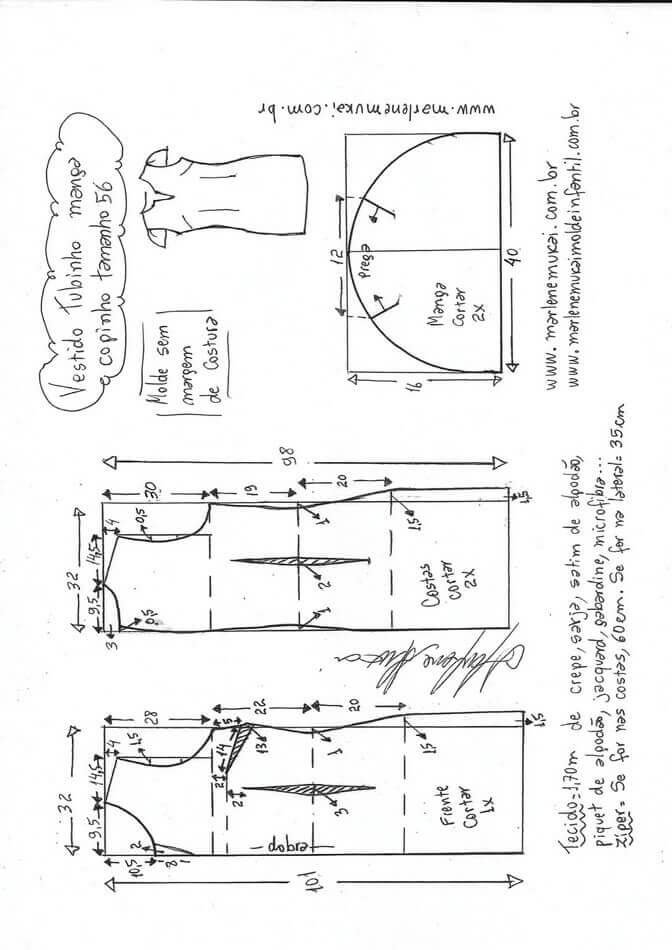 Vestido Tubinho manga
copinho tamanho 56
Molde sem
margem
de Costura
www.marlenemukai.com.br
12
prega
Manga
Cortar
2x
40
16
www.marlenemukai.com.br
www.marlenemukaimoldeinfantil.com.br
98
30
19
20
4
0,5
32
14,5
9,5
3
0,5
1
1
2
1,5
1,5
Costas
Cortar
2x
28
22
20
5
4
1,5
32
14,5
9,5
14
13
2
2
1
3
1,5
1,5
2
8
10,5
dobra
Frente
Cortar
1x
101
Tecido=1,70m de crepe, sarja, satim de algodão,
piquet de algodão, jacquard, gabardine, microfibra...
zíper= Se for nas costas, 60cm. Se for na lateral= 35cm